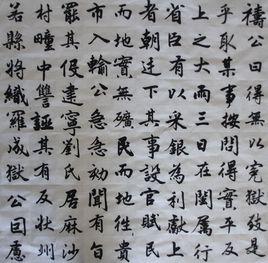 禱公曰得無以冤獄致是
乎取某事按問得實平反
上之大雨三日在閩屬行
省臣有以采銀為利獻上
者朝廷下其事設官賦民
而地實無礦民而地徃貴
市入輸公急急動聞有旬
罷其伇建寧劉氏居麻沙
村疃中讐誣其有反狀州
若縣將織羅成獄公因慮